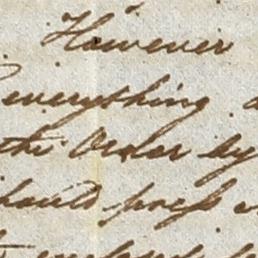 However
everything
the Order by
should press